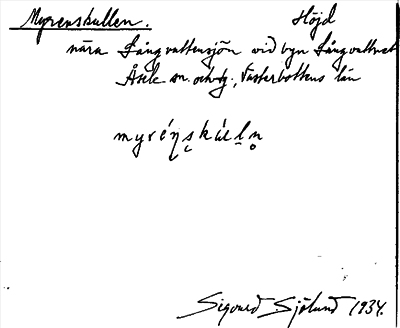 Myrenskullen. Höjd
nära Långvattensjön vid byn Långvattnet
Åsele sn. och tg., Västerbottens län
myrénskúlln
Sigurd Sjölund 1934.